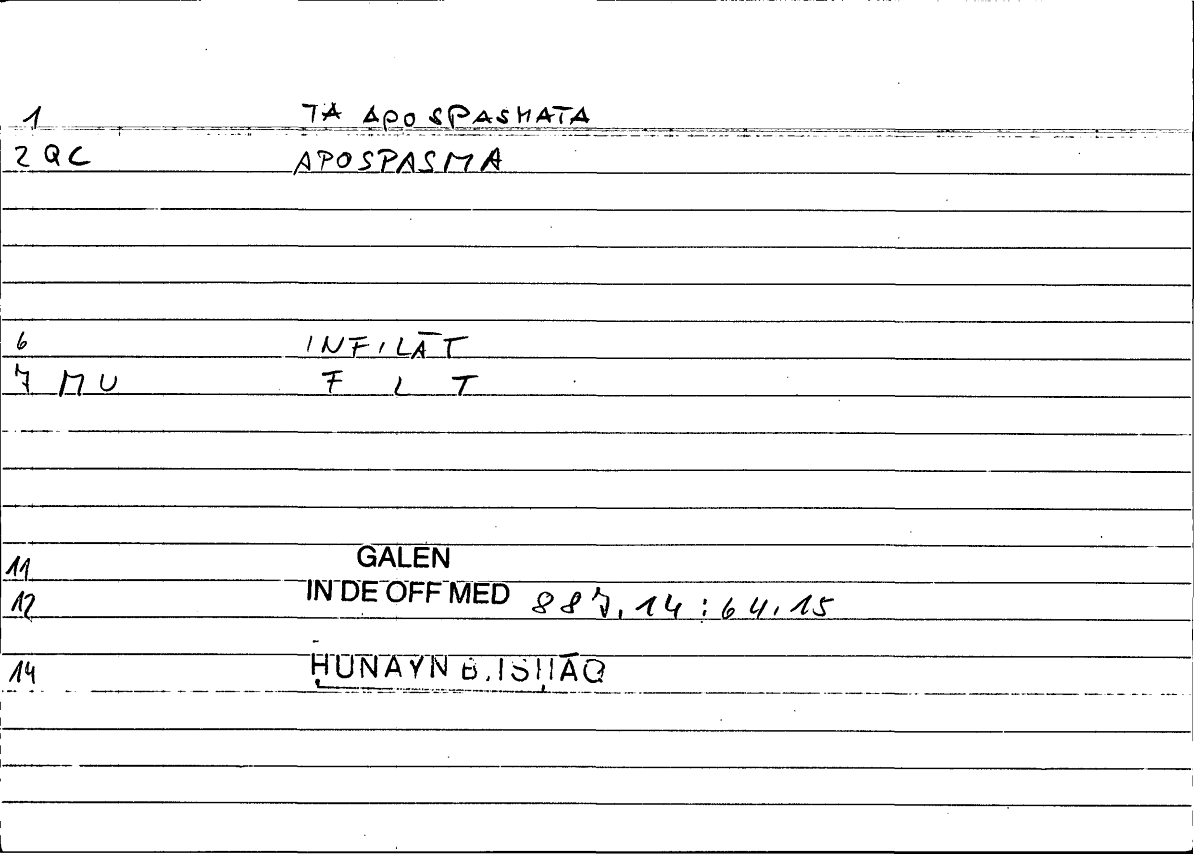 1 TA APOSPASMATA
2 QC APOSPASMA
6 INFILĀT
7 MU F L T
11 GALEN
12 IN DE OFF MED 887,14:64,15
14 ḤUNAYN B. ISḤĀQ